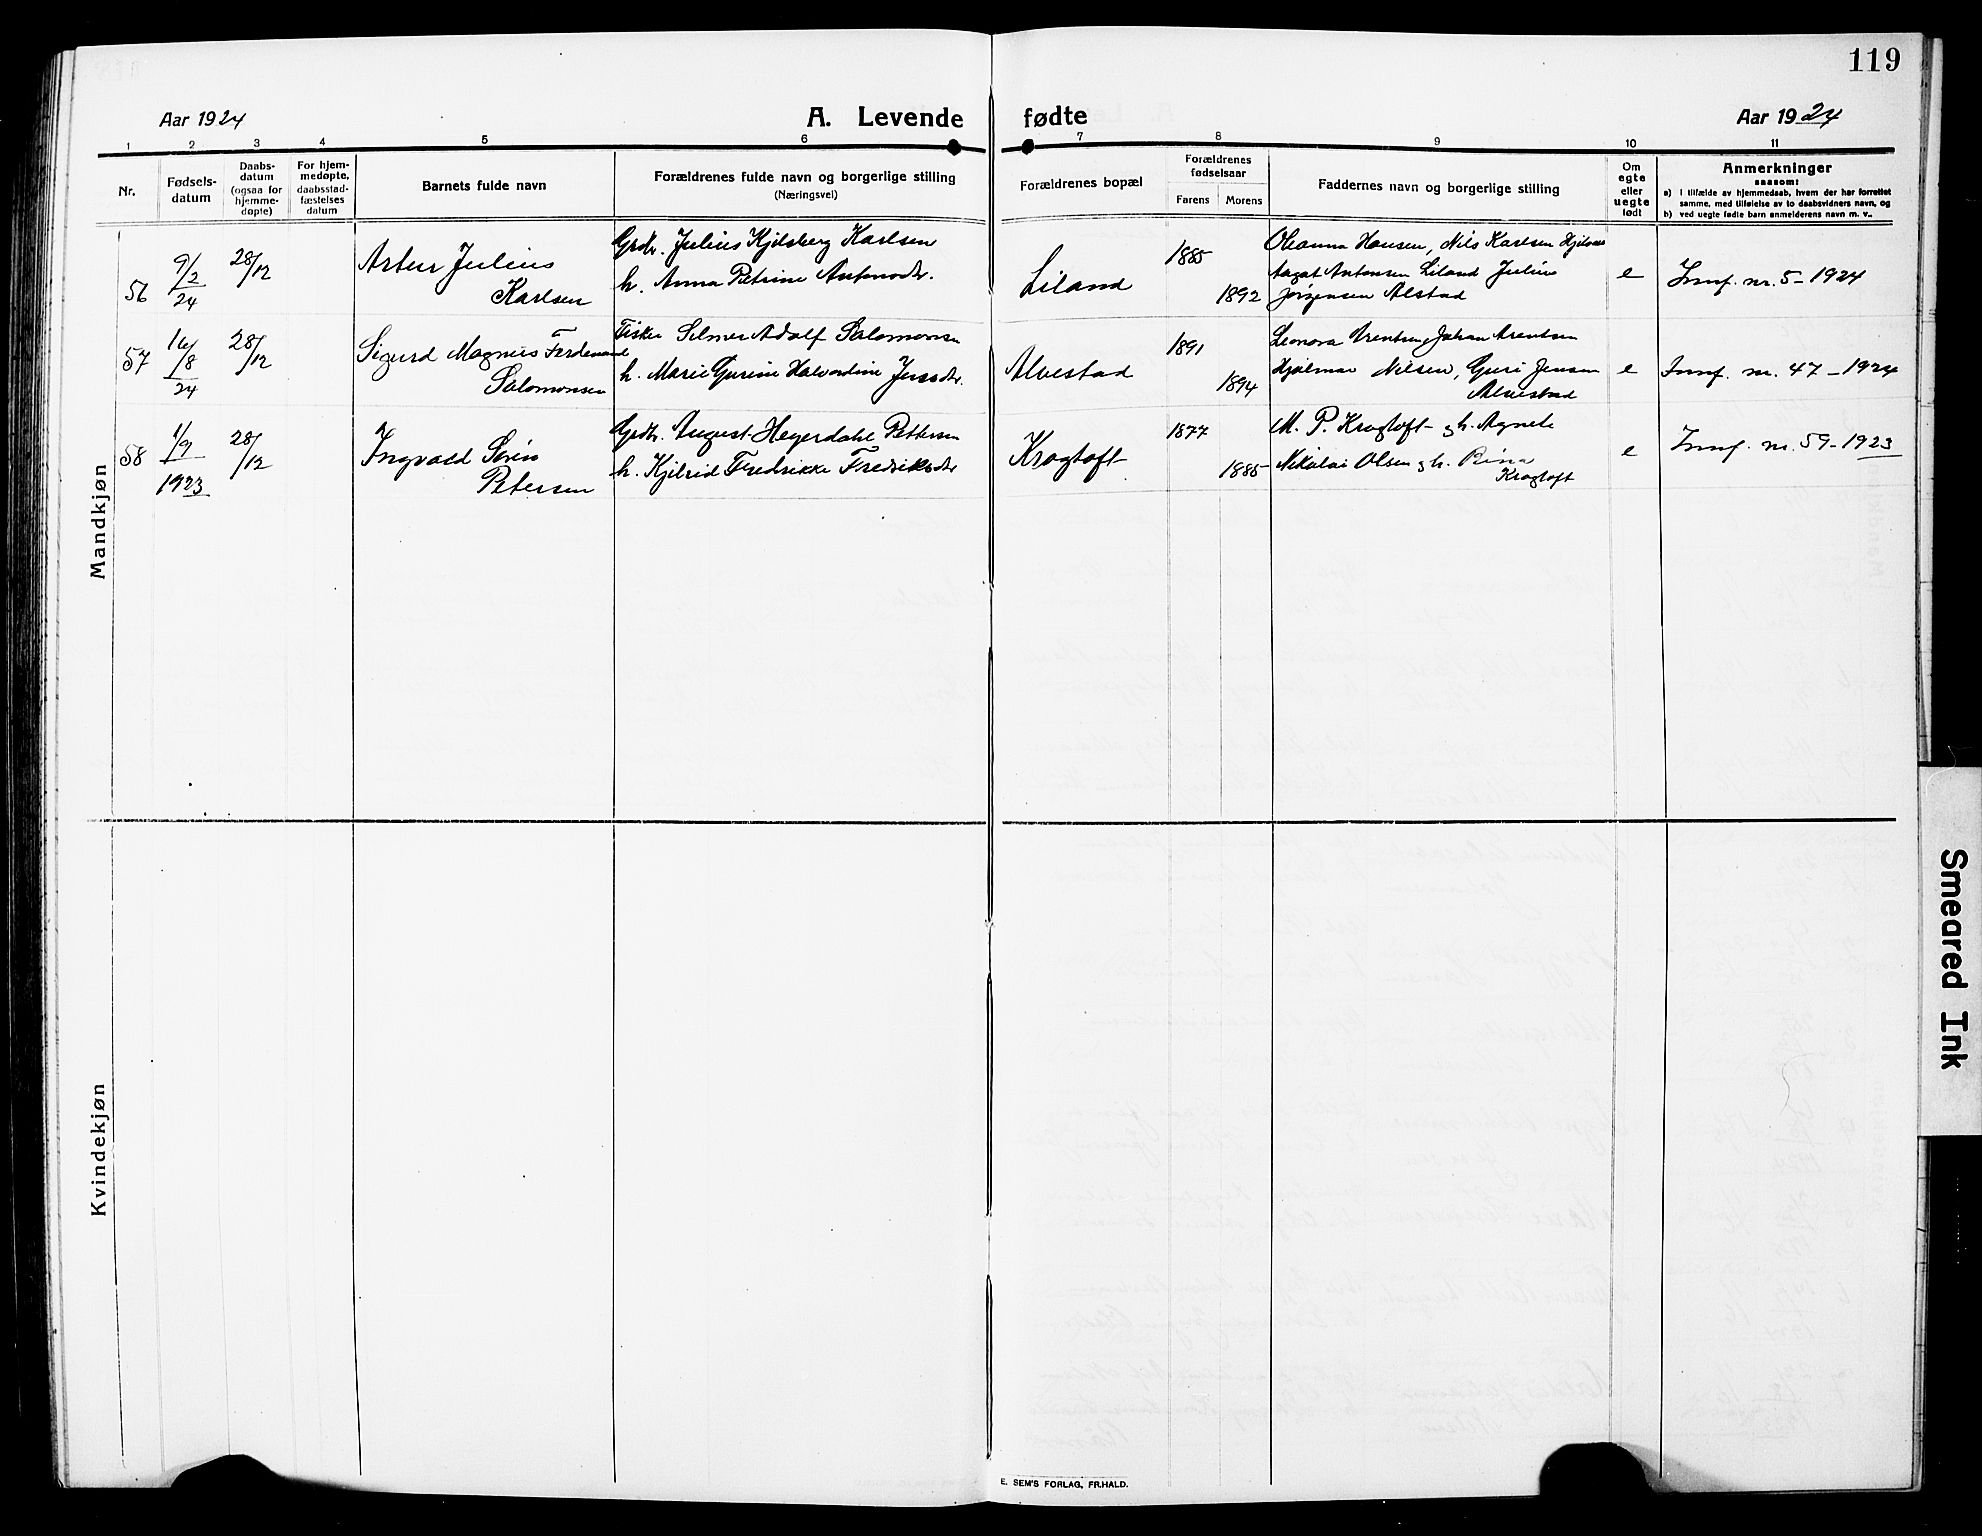 119
Aar 1924
A. Levende fødte
Aar 1924
1 2 3 4 5 6 7 8 9 10 11
Nr.
Fødsels-
datum
Daabs-
datum
(ogsaa for
hjemme-
døpte)
For hjem-
medøpte,
daabsstad-
fæstelses
datum
Barnets fulde navn
Forældrenes fulde navn og borgerlige stilling
(Næringsvei)
Forældrenes bopæl
Forældrenes
fødselsaar
Farens Morens
Faddernes navn og borgerlige stilling
Om
egte
eller
uegte
født
Anmerkninger
saasom:
a) I tilfælde av hjemmedaab, hvem der har forrettet
samme, med tilføielse av to daabsvidners navn, og
b) ved uegte fødte barn anmelderens navn m. v..
Mandkjøn
56
9/2
24
28/12
Artur Julius
Karlsen
Grdr. Julius Kjilsberg Karlsen
h. Anna Petrine Antonsdtr.
Liland
1885
1892
Oleanna Hansen, Nils Karlsen
Aagot Antonsen Liland Julius
Jørgensen Alstad
e
Innf. nr. 5 - 1924
57
16/8
24
28/12
Sigurd Magnus Ferdinand
Salomonsen
Fisker Selmer Adolf Salomonsen
h. Marie Gurine Halvardine Jensdtr.
Alvestad
1891
1894
Leonora Arentsen, Johan Arentsen
Hjalmar Nilsen, Guri Jensen
Alvestad
e
Innf. nr. 47 - 1924
58
1/9
1923
28/12
Ingvald Søren
Petersen
Grdbr. August Heyerdahl Pettersen
h. Kjelrid Fredrikke Fredriksdtr
Krogtoft
1877
1885
M. P. Krogtoft og h. Agnete
Nikolai Olsen og h. Rina
Krogtoft
e
Innf. nr. 59 - 1923
Kvindekjøn
E. SEM'S FORLAG, FR.HALD.
Smeared Ink